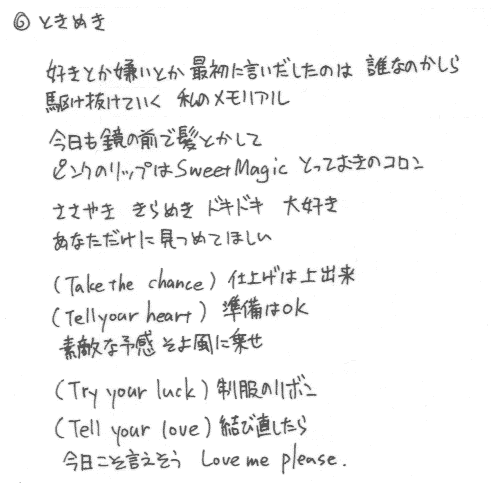 ⑥ ときめき
好きとか嫌いとか 最初に言いだしたのは 誰なのかしら
駆け抜けていく 私のメモリアル
今日も鏡の前で髪とかして
ピンクのリップはSweet Magic とっておきのコロン
ささやき きらめき ドキドキ 大好き
あなただけに見つめてほしい
(Take the chance) 仕上げは上出来
(Tell your heart) 準備はOK
素敵な予感 そよ風に乗せ
(Try your luck) 制服のリボン
(Tell your love) 結び直したら
今日こそ言えそう Love me please.